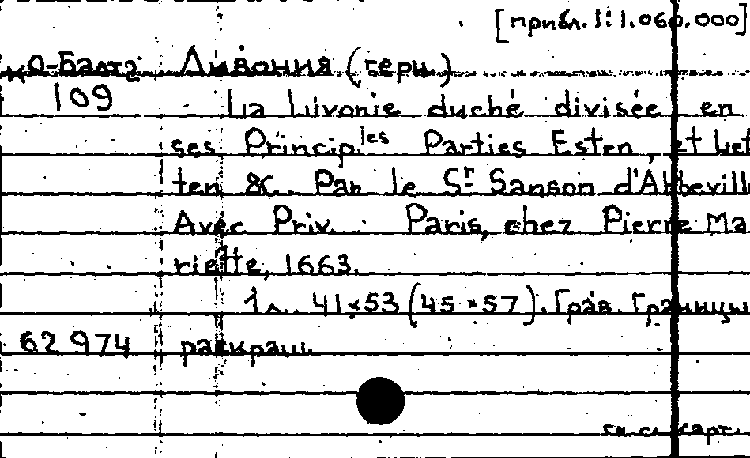 [прибл. 1:1.060.000]
К О-Балт 2 Ливония (герц.)
109 La Livonie duché divisée en
ses Princip.les Parties Esten, et Let
ten &c. Par le Sr Sanson d'Abbeville
Avec Priv. Paris, chez Pierre Ma
riette, 1663.
1 л. 41×53 (45×57). Грав. Границы
62 974 раскраш.
см. сл. карт.